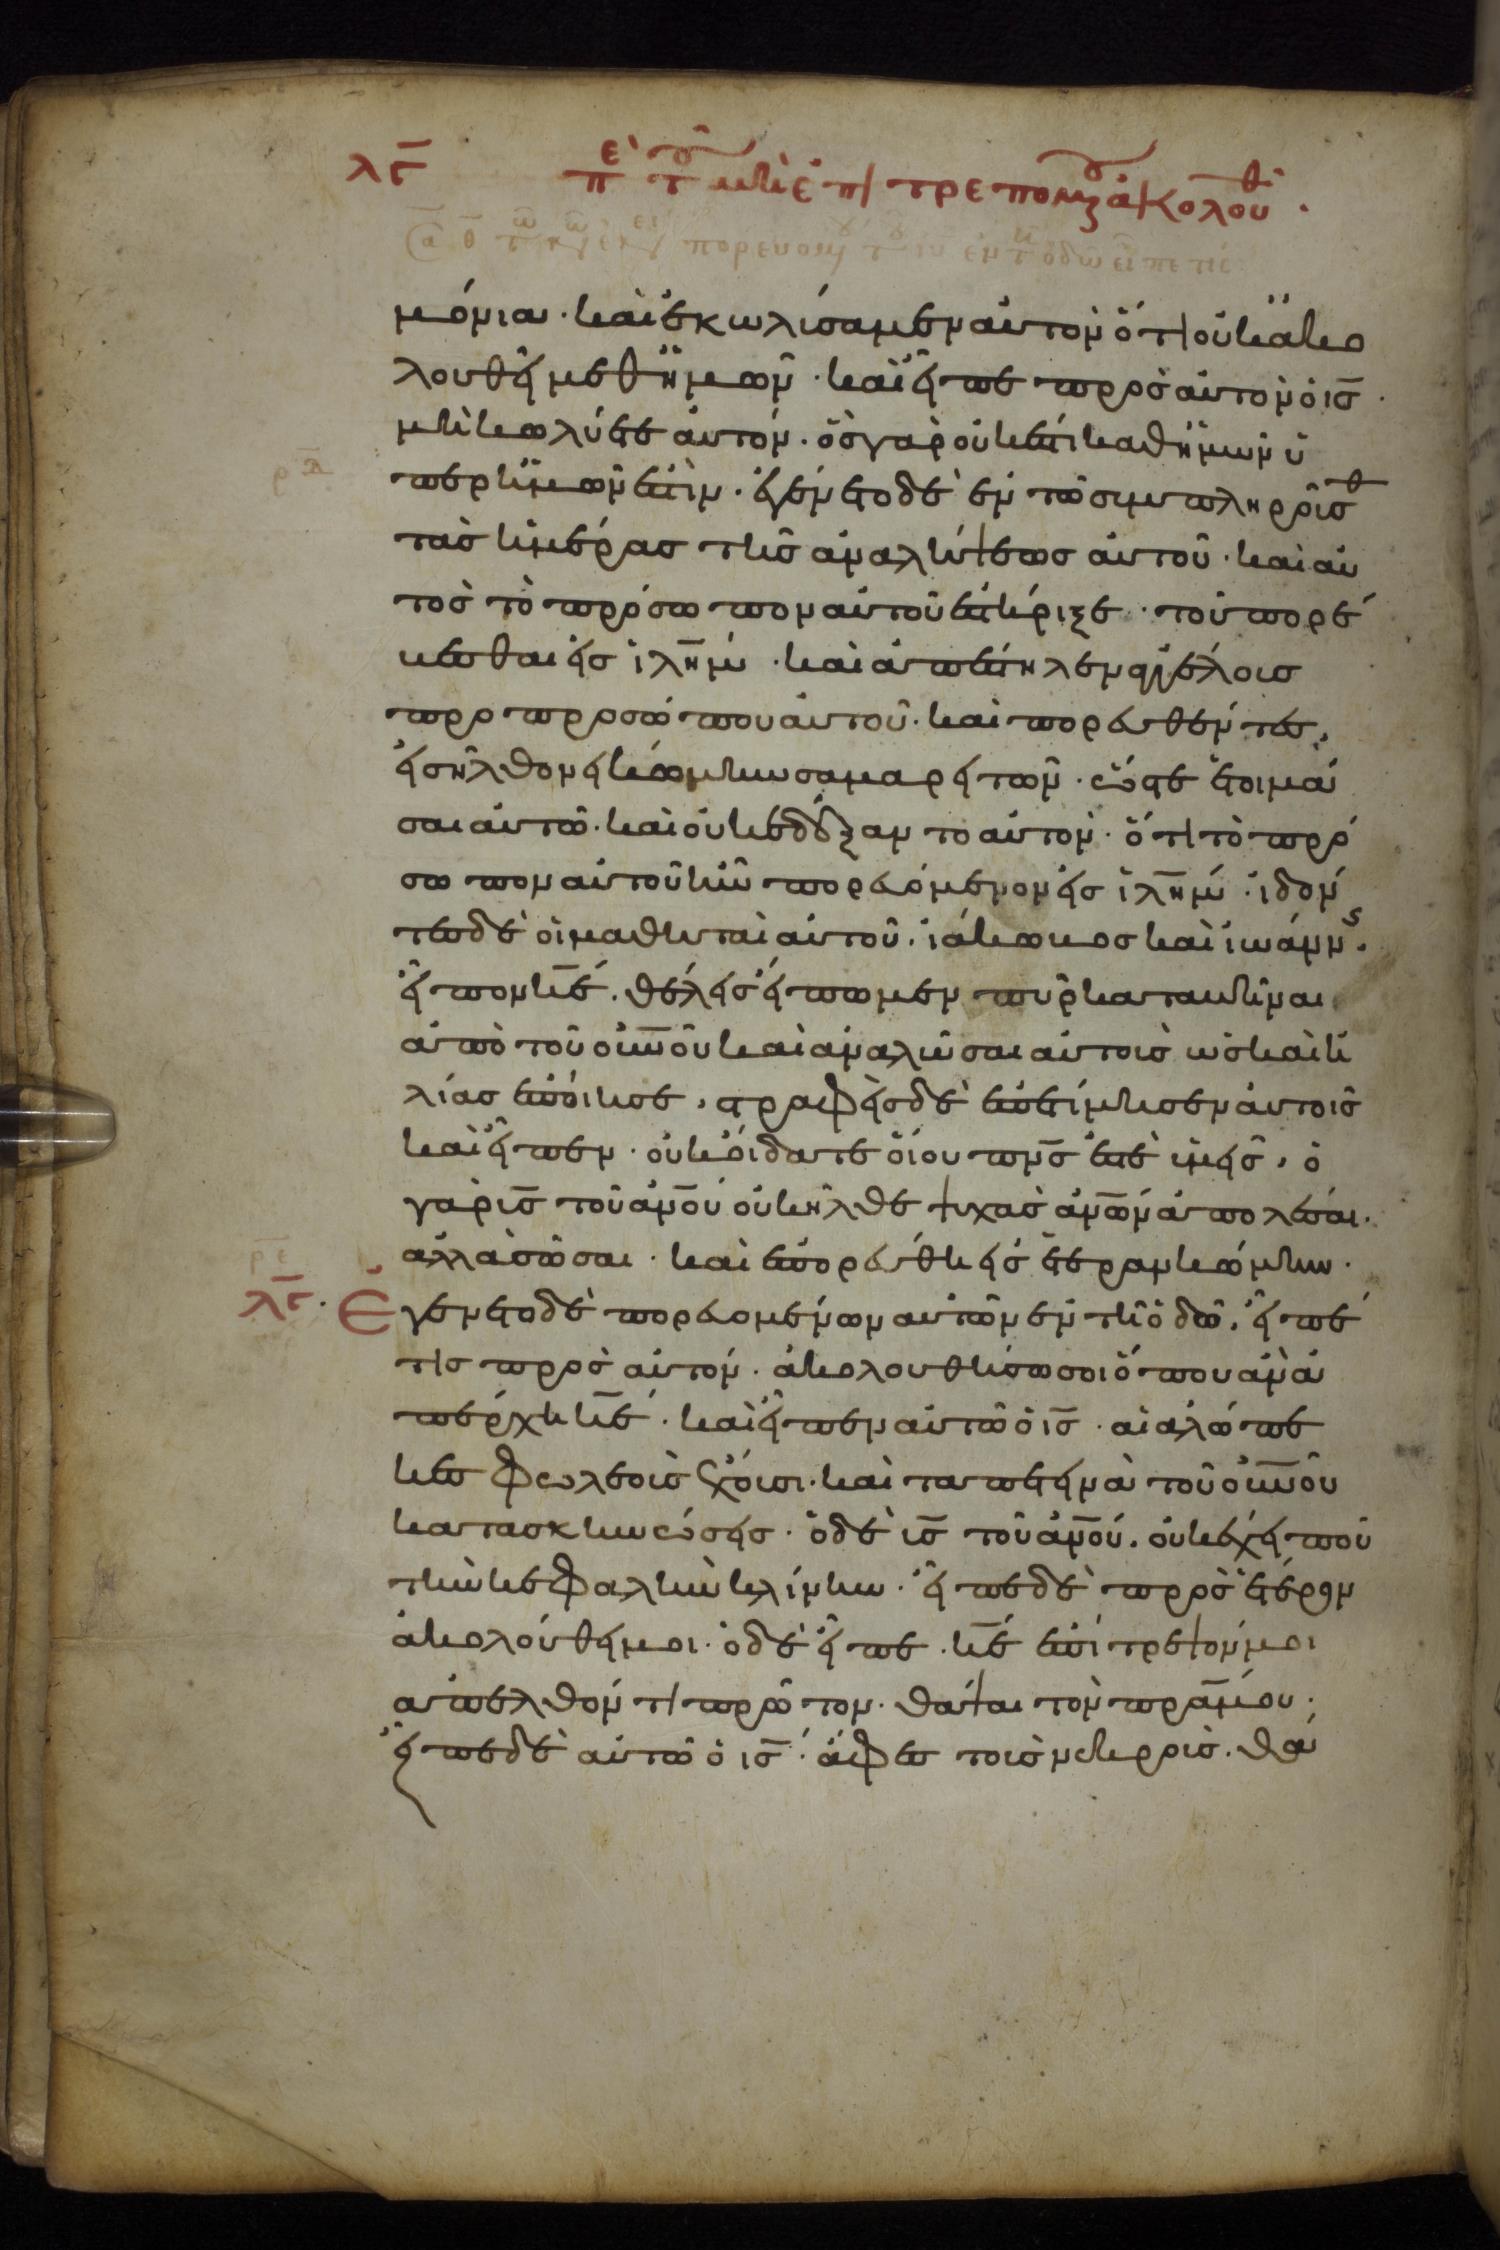 λ̅ϛ̅ πε τοῦ μὴ ἐπιτρεπομ ἀκολουθ
μόνια · καὶ ἐκωλίσαμεν αὐτὸν ὅτι οὐκ ἀκο
λουθεῖ μεθ ἡμῶν · καὶ εἶπε πρὸς αὐτὸν ὁ ι̅ς̅ ·
μὴ κωλύετε αὐτόν · ὃς γὰρ οὐκ ἔστι καθ ἡμῶν ὑ
ρ̅λ̅
πὲρ ἡμῶν ἐστίν · ἐγένετο δὲ ἐν τῶ συμπληροῖσθ
τὰς ἡμέρας τῆς ἀναλήψεως αὐτοῦ · καὶ αὐ
τὸς τὸ πρόσωπον αὐτοῦ ἐστήριξε · τοῦ πορεύ
εσθαι εἰς ἰλ̅η̅μ̅ · καὶ ἀπέστηλεν ἀγγέλους
προ προσώπου αὐτοῦ · καὶ πορευθέντες,
εἰσῆλθον εἰς κώμην σαμαρειτῶν · ὥστε ἑτοιμά
σαι αὐτῶ · καὶ οὐκ ἐδέξαντο αὐτόν · ὅτι τὸ πρό
σωπον αὐτοῦ ἦν πορευόμενον εἰς ἰλ̅η̅μ̅ · ἰδόν
τες δὲ οἱ μαθηταὶ αὐτοῦ · ἰάκωβος καὶ ἰωάνν ·
εἶπον κ̅ε̅ · θέλεις εἴπωμεν πῦρ καταβῆναι
ἀπὸ τοῦ οὐ̅ν̅οῦ καὶ ἀναλῶσαι αὐτοὺς ὡς καὶ ἠ
λίας ἐποίησε · στραφεὶς δὲ ἐπετίμησεν αὐτοῖς
καὶ εἶπεν · οὐκ οἴδατε οἵου π̅ν̅ς̅ ἐστὲ ὑμεῖς · ὁ
γὰρ υ̅ς̅ τοῦ ἀν̅ο̅υ̅ οὐκ ἦλθε ψυχὰς ἀν̅ω̅ν̅ ἀπολέσαι ·
ρ̅ε̅
ἀλλὰ σῶσαι · καὶ ἐπορεύθη εἰς ἑτέραν κώμην ·
λ̅ϛ̅ · Ἐγένετο δὲ πορευομένων αὐτῶν ἐν τῆ ὁδῶ · εἶπέ
τις πρὸς αὐτόν · ἀκολουθήσω σοι ὅπου ἀν ἀ
πέρχη κ̅ε̅ · καὶ εἶπεν αὐτῶ ὁ ι̅ς̅ · αἱ ἀλώπε
κες φωλεοὺς ἔχουσι · καὶ τα πετεινὰ τοῦ οὐ̅ν̅οῦ
κατασκηνώσεις · ὁ δὲ υ̅ς̅ τοῦ ἀν̅ο̅υ̅ · οὐκ ἔχει ποῦ
τὴν κεφαλὴν κλίνην · εἶπε δὲ πρὸς ἕτερον
ἀκολούθει μοι · ὁ δὲ εἶπε · κ̅ε̅ ἐπίτρεψον μοι
ἀπελθόντι πρῶτον · θάψαι τὸν π̅ρ̅α̅ μου ·
εἶπε δὲ αὐτῶ ὁ ι̅ς̅ · ἄφες τοὺς νεκρούς · θά